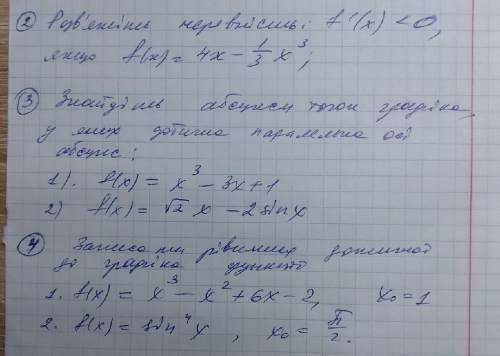 ② Розв'яжіть нерівність: f'(x) < 0,
якщо f(x) = 4x - 1/3 x³;
③ Знайдіть абсциси точок графіка,
у яких дотична паралельна осі
абсцис:
1). f(x) = x³ - 3x + 1
2) f(x) = √2 x - 2 sin x
④ Записати рівняння дотичної
до графіка функції
1. f(x) = x³ - x² + 6x - 2, x₀ = 1
2. f(x) = sin⁴ x, x₀ = π/2.